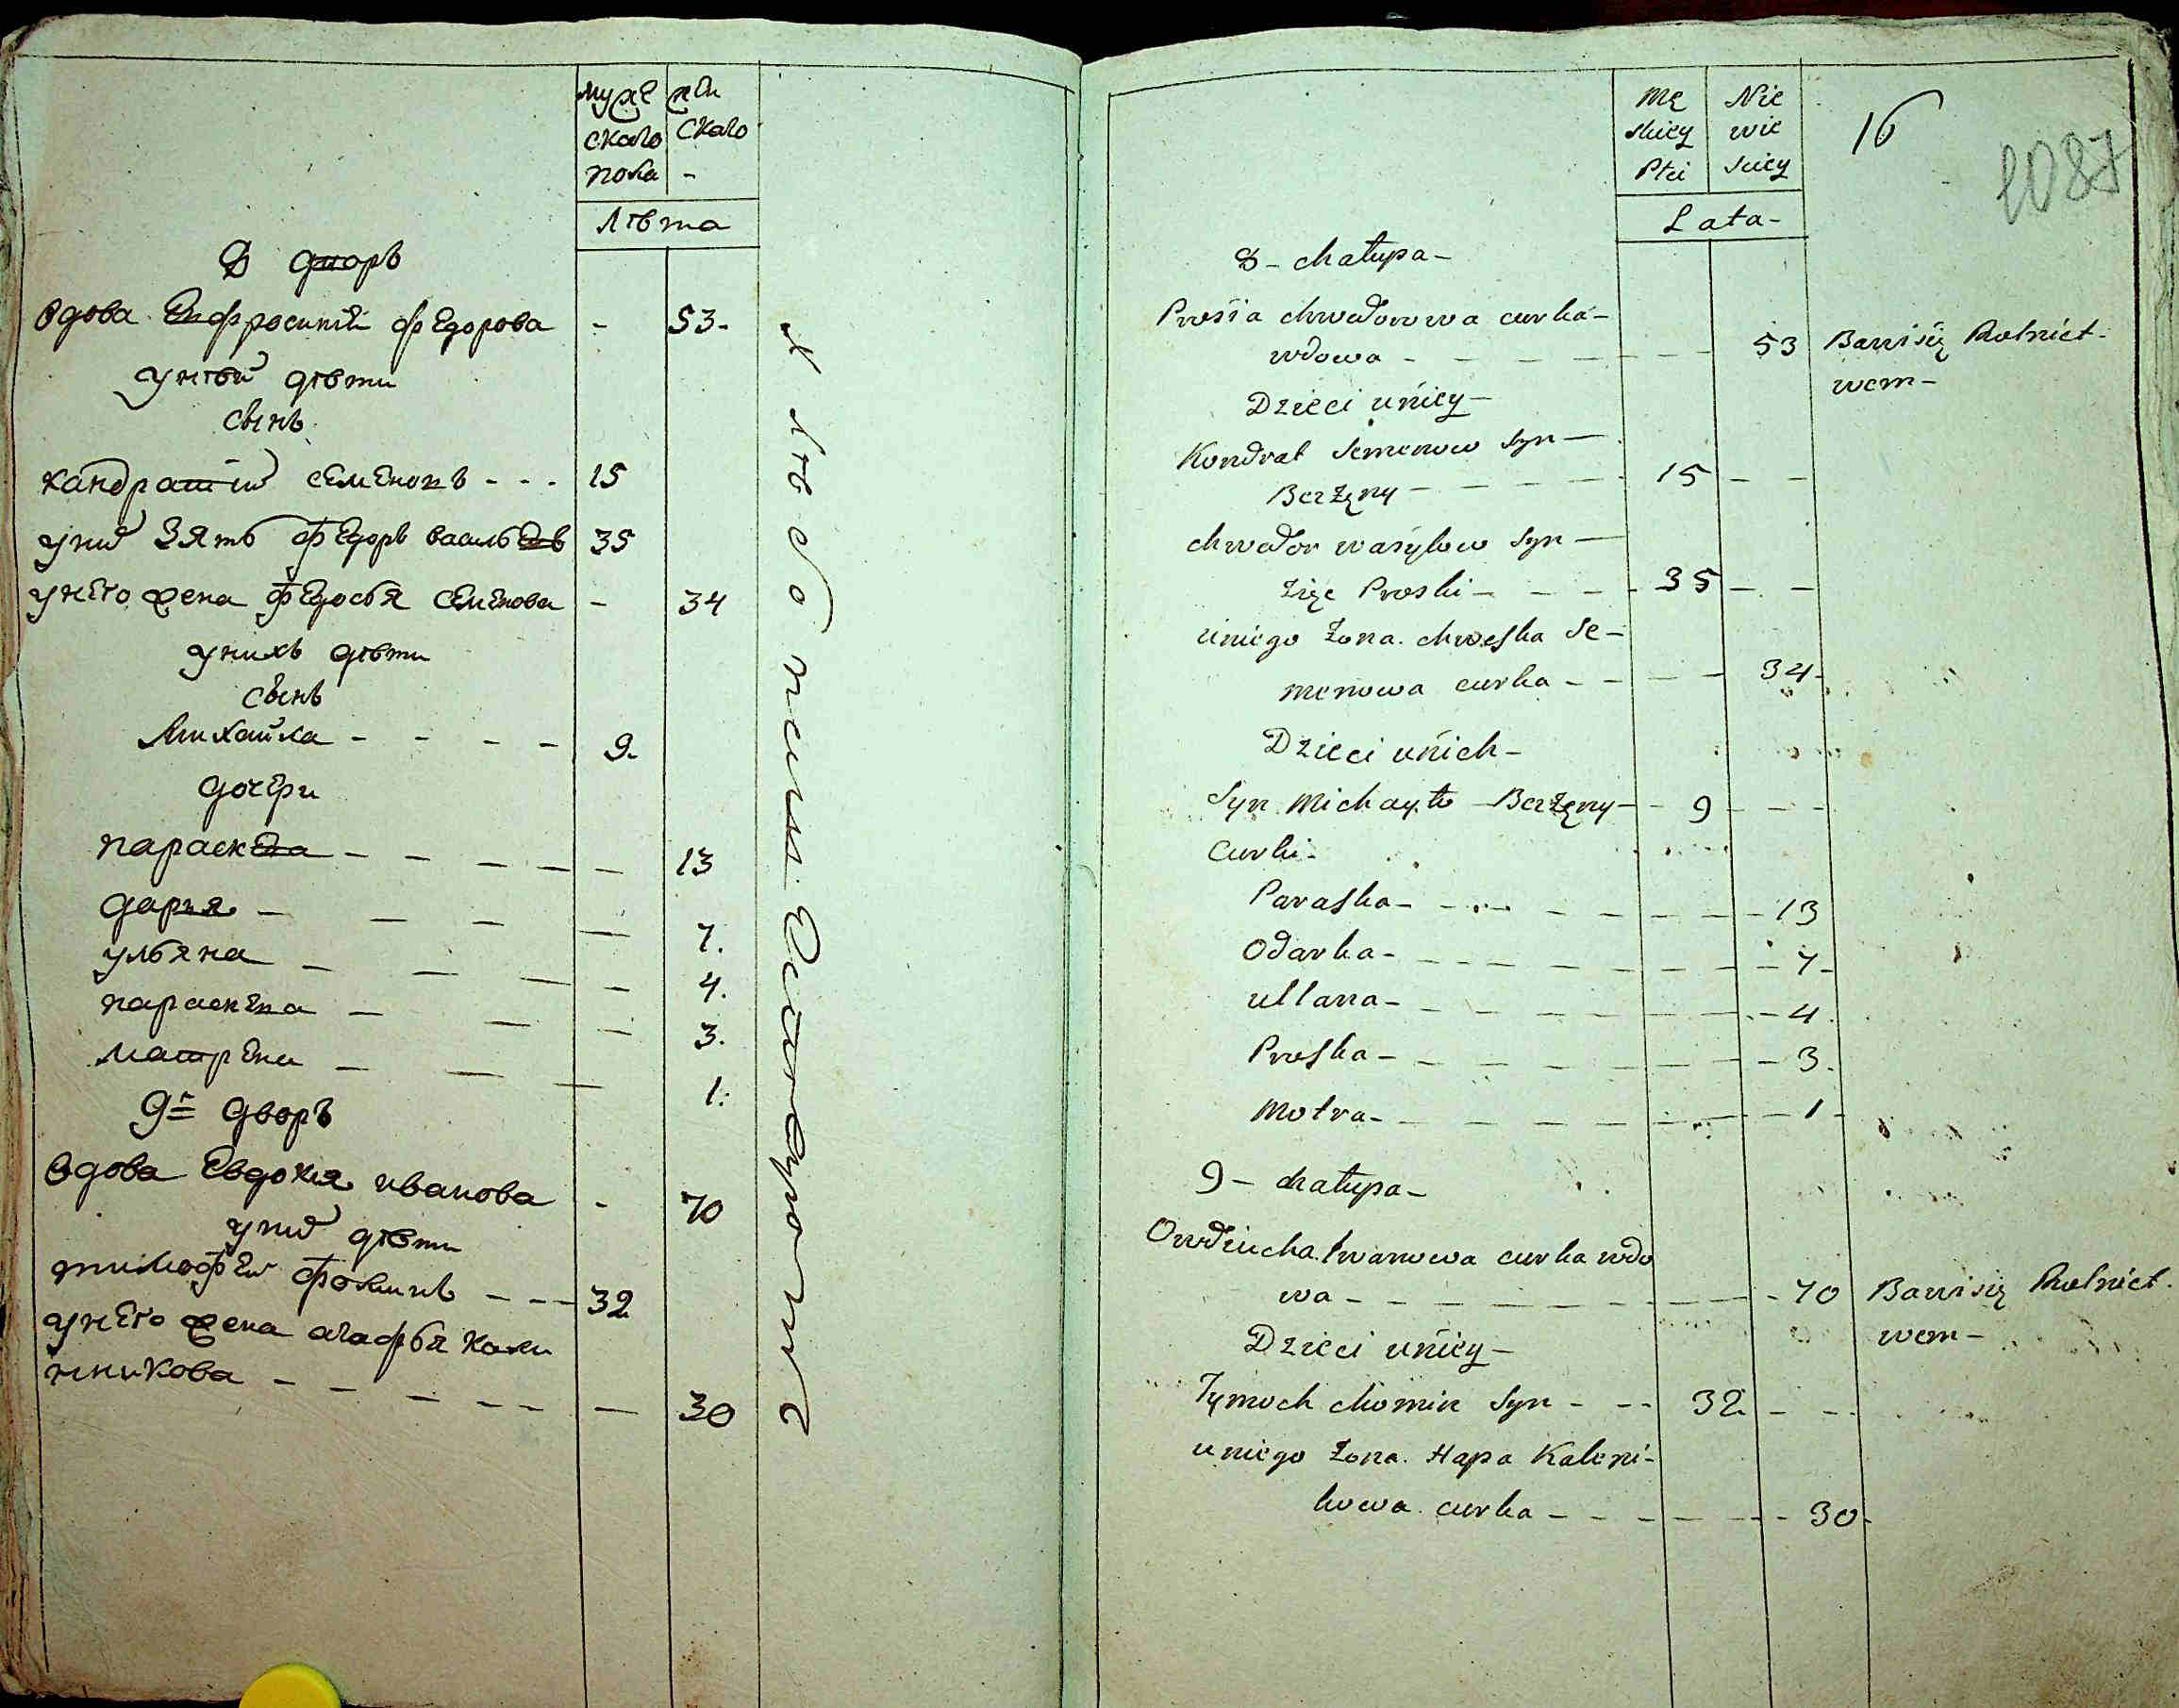 муже
скаго
пола
жен
скаго
-
Лѣта
8 дворъ
вдова Ефросинія федорова - 53.
у неи дѣти
сынъ
кандратіи семеновъ - - - 15
у ни зять федоръ васильевъ 35
у него жена федосья семенова - 34
у нихъ дѣти
сынъ
Михайла - - - - 9.
дочери
параскева - - - - - 13
дарья - - - - 7.
ульяна - - - - 4.
параскева - - - 3.
матрена - - - 1.
9й дворъ
вдова Евдокия иванова - 70
у ни дѣти
тимофеи фоминъ - - - 32
у него жена агафья Кали
никова - - - - - - 30
Хлебопашествуютъ
Mę
skiey
Płci
Nie
wie
sciey
16
1087
Lata-
8 - chałupa -
Prosia chwedorowa curka -
wdowa - - - - - - 53 Bawi się Rolnict-
wem -
Dzieci u niey -
Kondrat Semenow Syn -
Berżęny - - - - - 15 - -
chwedor wasylow Syn -
zięc Proski - - - - 35 - -
u niego żona. chweska Se -
menowa curka - - - - 34 -
Dzieci u nich -
Syn Michayło Berżęny - - 9 - - -
Curki -
Paraska - - - - - - - 13
Odarka - - - - - - - 7 -
ullana - - - - - - - 4
Proska - - - - - - - 3.
Motra - - - - - - - 1 -
9 - chałupa -
Owdiucha Iwanowa curka wdo
wa - - - - - - - - 70 Bawi się Rolnict-
wem -
Dzieci u niey -
Tymoch chomin Syn - - - 32 - - -
u niego żona. Hapa Kaleni -
kowa curka - - - - - - 30 -